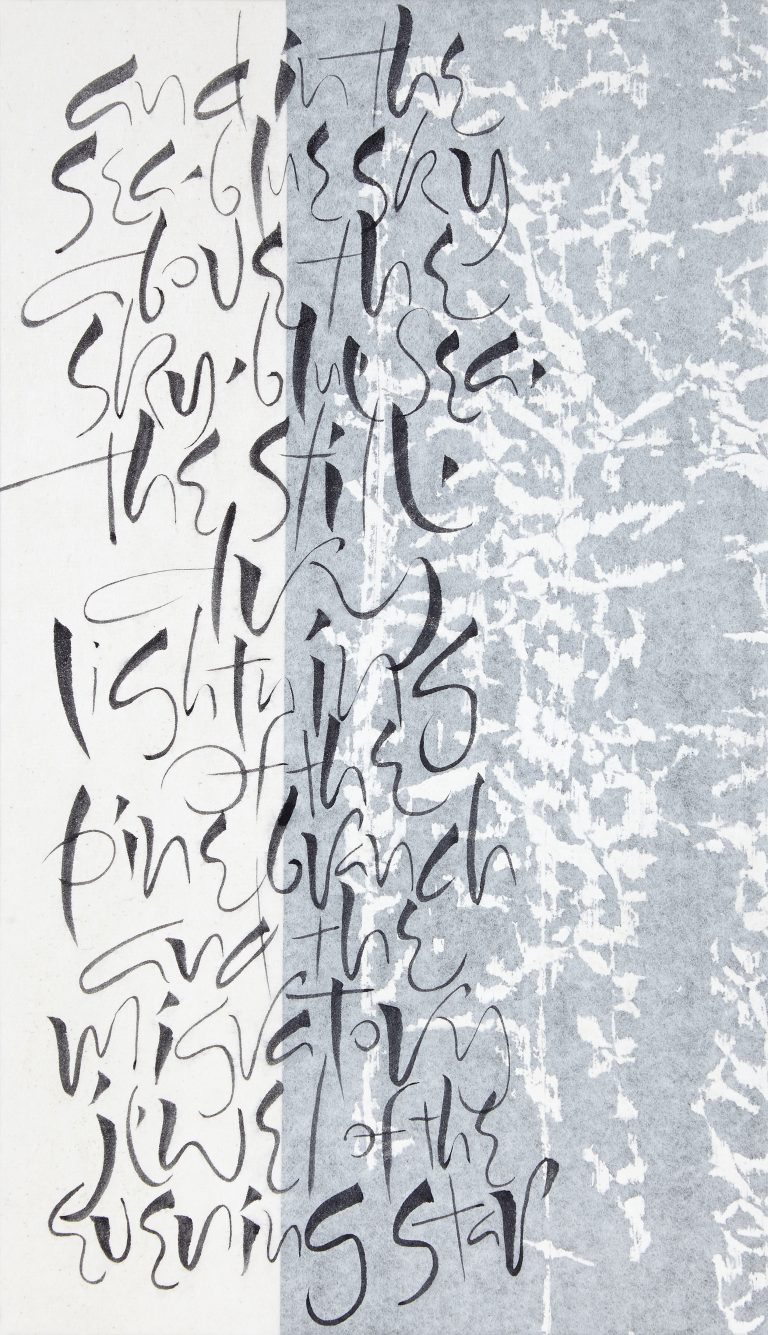 and in the
sea·blue sky
above the
sky·blue sea·
the still·
dry
lightning
of the
pine branch
and the
migratory
jewel of the
evening star